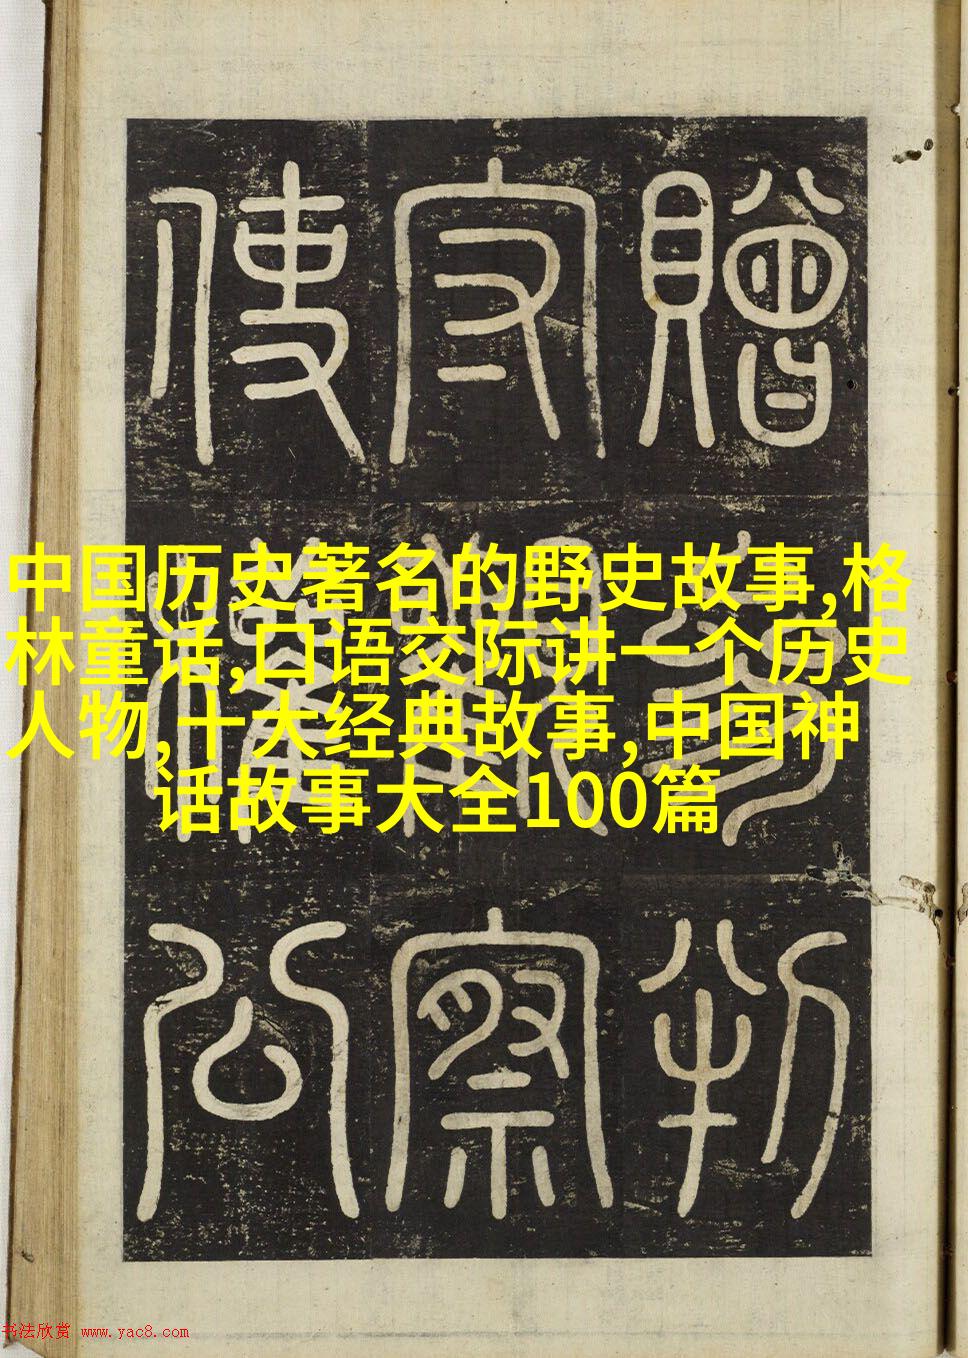 中国历史著名的野史故事,格
林童话,口语交际讲一个历史
人物,十大经典故事,中国神
话故事大全100篇
贈判
察
使公
书法欣赏 www.yac8.com